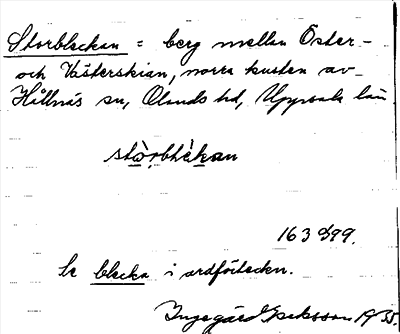 Storbleckan = berg mellan Öster-
och Västerskian, norra kusten av
Hållnäs sn, Olands hd, Uppsala län.
stòrblèkan
163 D99.
Se blecka i ordförteckn.
Ingegärd Eriksson 1935.